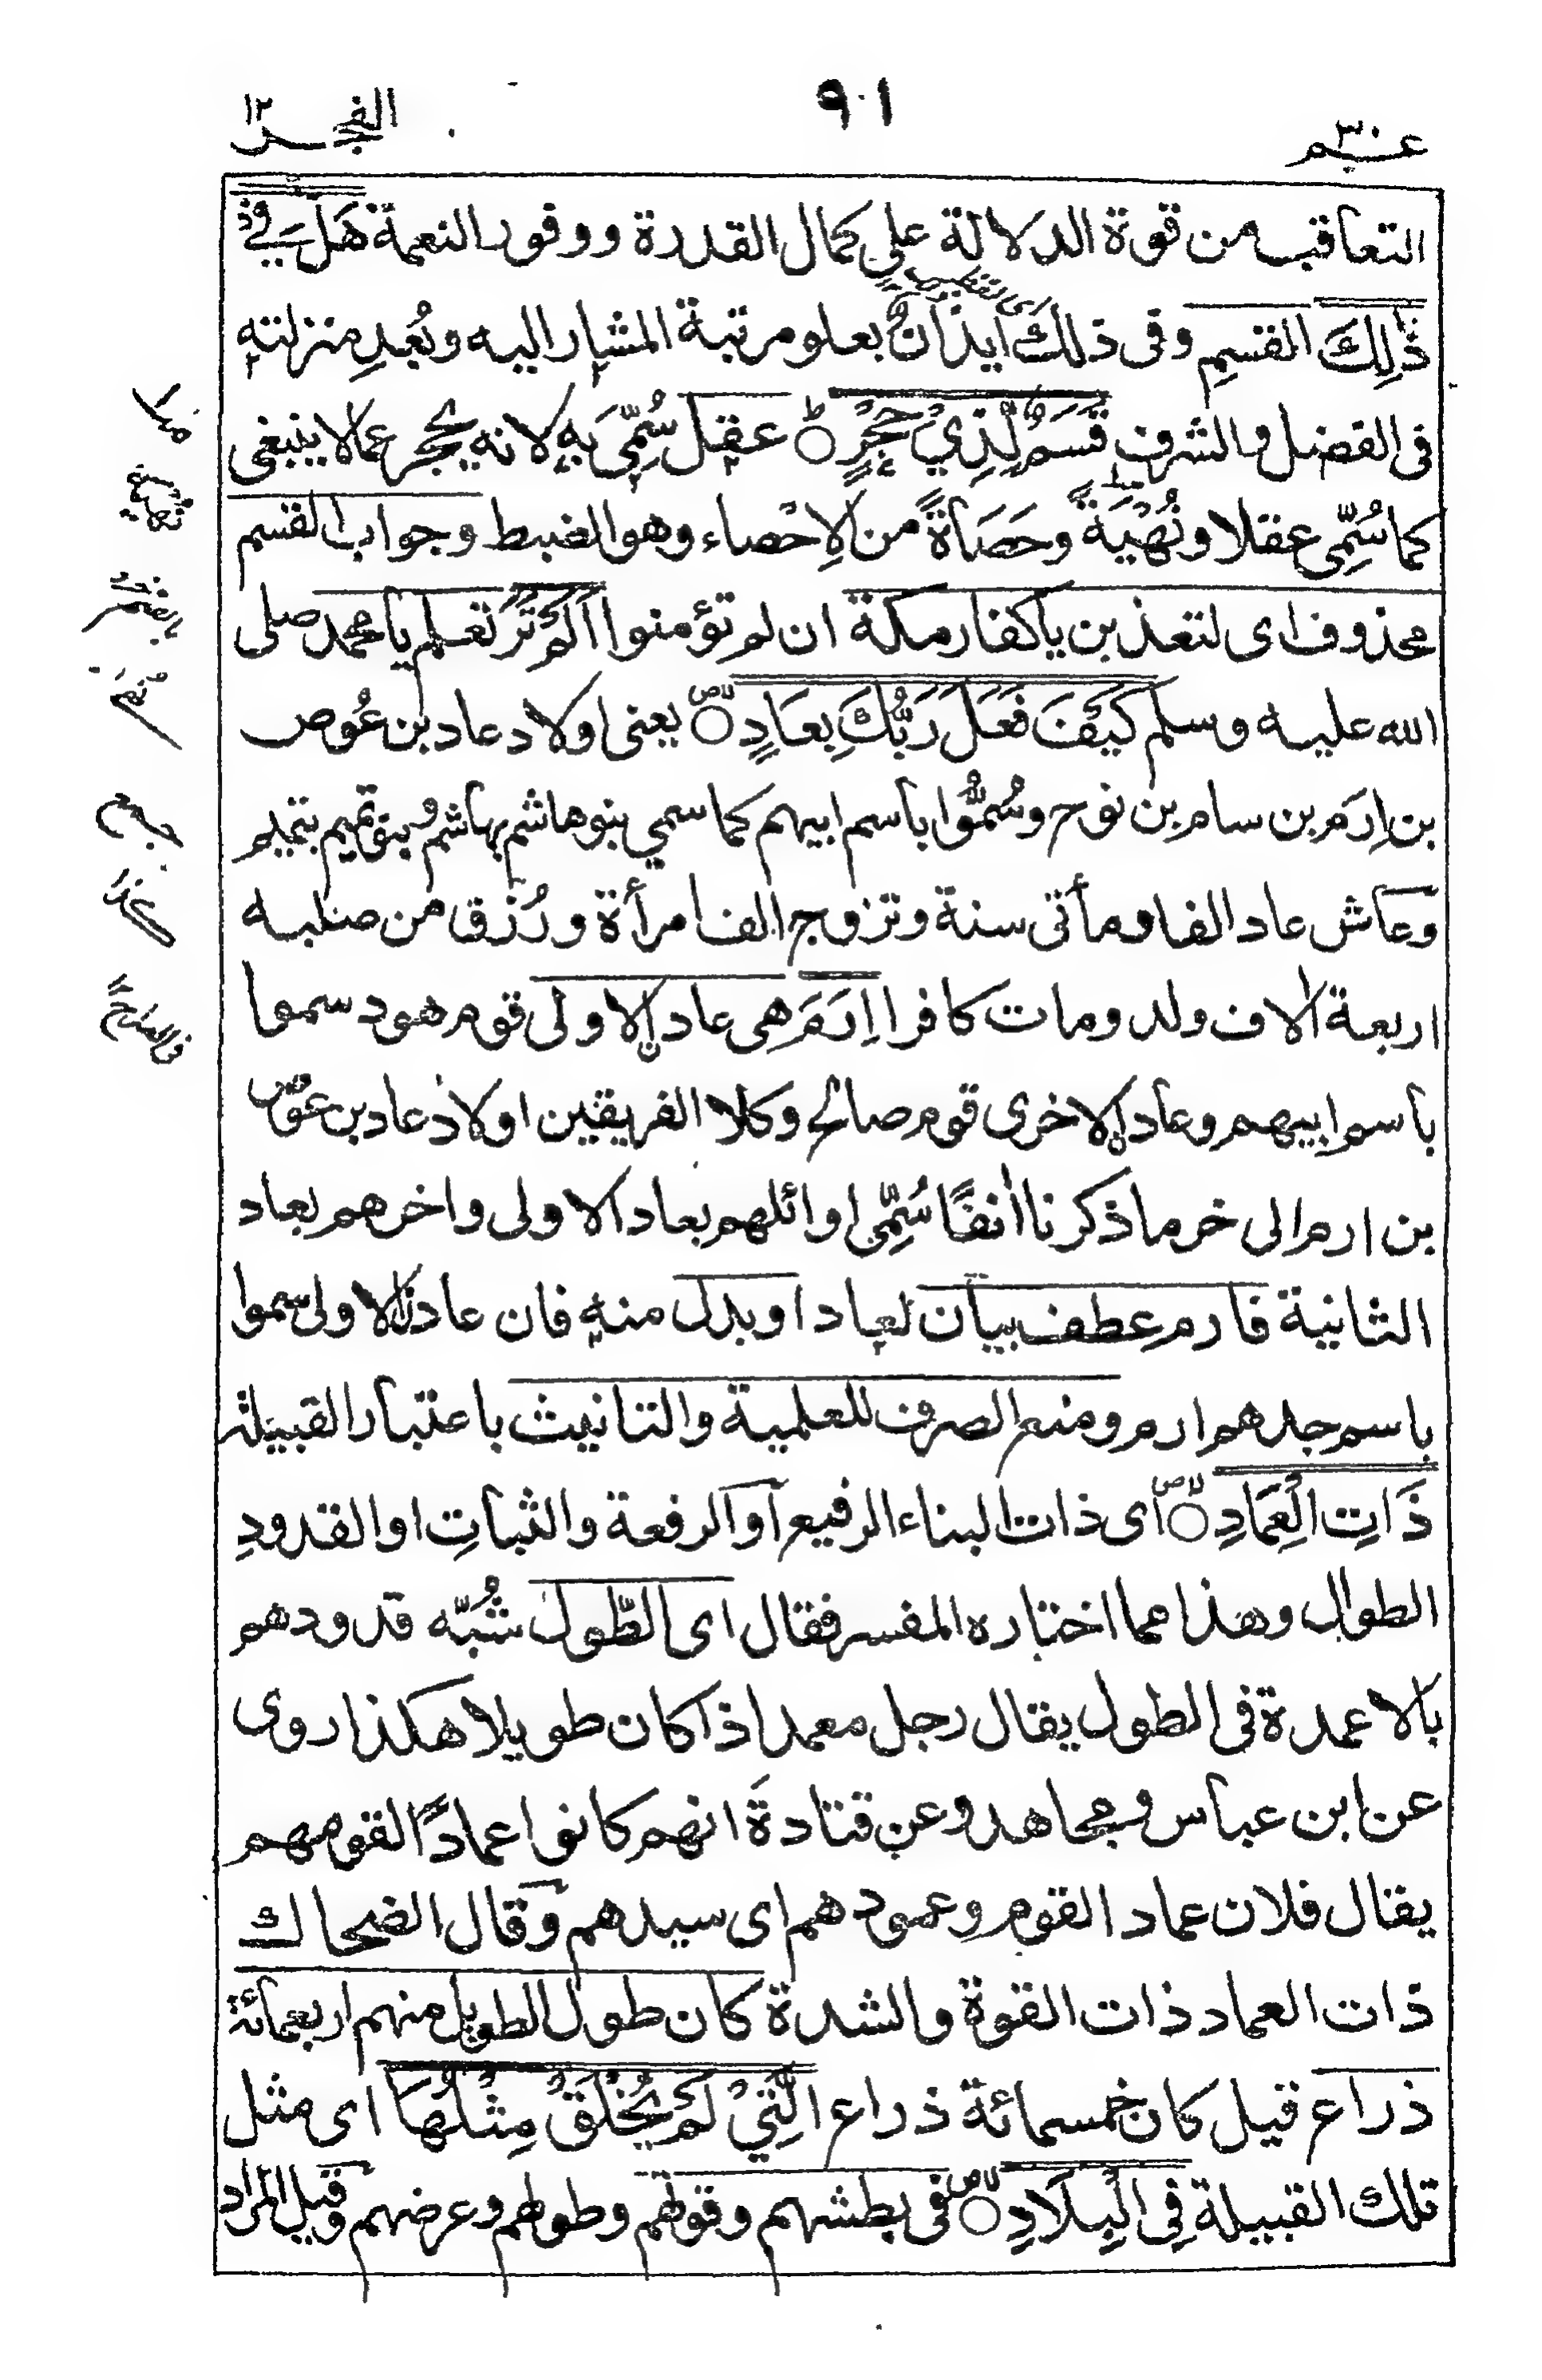 عـم ٣٠
٩٠١
الفجر ١٢
التعاقب من قوة الدلالة على كمال القدرة ووفور النعمة هَلْ فِيْ
اى تفكير
ذٰلِكَ القسمِ وفى ذلك ايذانٌ بعلو مرتبة المشار اليه وبُعدِ منزلته
فى الفضل والشرف قَسَمٌ لِّذِيْ حِجْرٍ ۝ عقل سُمِّىَ به لانه يحجر عما لا ينبغى
كما سُمِّى عقلا ونُهْيَةً وحَصَاةً من الاِحْصاء وهو الضبط وجواب القسم
محذوف اى لتعذبن ياكفار مكة ان لم تؤمنوا اَلَمْ تَرَ تعلم يا محمد صلى
الله عليه وسلم كَيْفَ فَعَلَ رَبُّكَ بِعَادٍ ۝ يعنى اولاد عاد بن عُوص
بن اِرَم بن سام بن نوح وسُمُّوا باسم ابيهم كما سمي بنو هاشم بهاشم وبنو تميم بتميم
وعاش عاد الفا ومأتى سنة وتزوج الف امرأة ورُزق من صلبه
اربعة الاف ولد ومات كافرا اِرَمَ هى عاد الاولى قوم هود سموا
باسم ابيهم وعاد الاخرى قوم صالح وكلا الفريقين اولاد عاد بن عوص
بن ارم الى خر ما ذكرنا اٰنفًا سُمِّى اوائلهم بعاد الاولى واخرهم بعاد
الثانية فارم عطف بيان لعاد او بدل منه فان عاد الاولى سموا
باسم جدهم ارم ومنع الصرف للعلمية والتانيث باعتبار القبيلة
ذَاتِ الْعِمَادِ ۝ اى ذات البناء الرفيع او الرفعة والثباتِ او القدودِ
الطوال وهذا مما اختاره المفسر فقال اى الطّول شُبِّه قدودهم
بالاعمدة فى الطول يقال رجل معمد اذا كان طويلا هكذا روى
عن ابن عباس ومجاهد وعن قتادةَ انهم كانوا عمادًا لقومهم
يقال فلان عماد القوم وعمودهم اى سيدهم وقال الضحاك
ذات العماد ذات القوة والشدة كان طول الطويل منهم اربعمائة
ذراع قيل كان خمسمائة ذراع الَّتِيْ لَمْ يُخْلَقْ مِثْلُهَا اى مثل
تلك القبيلة فِى الْبِلَادِ ۝ فى بطشهم وقوتهم وطولهم وعرضهم وقيل المراد
بالضم
جمع
كذا
فى الصراح